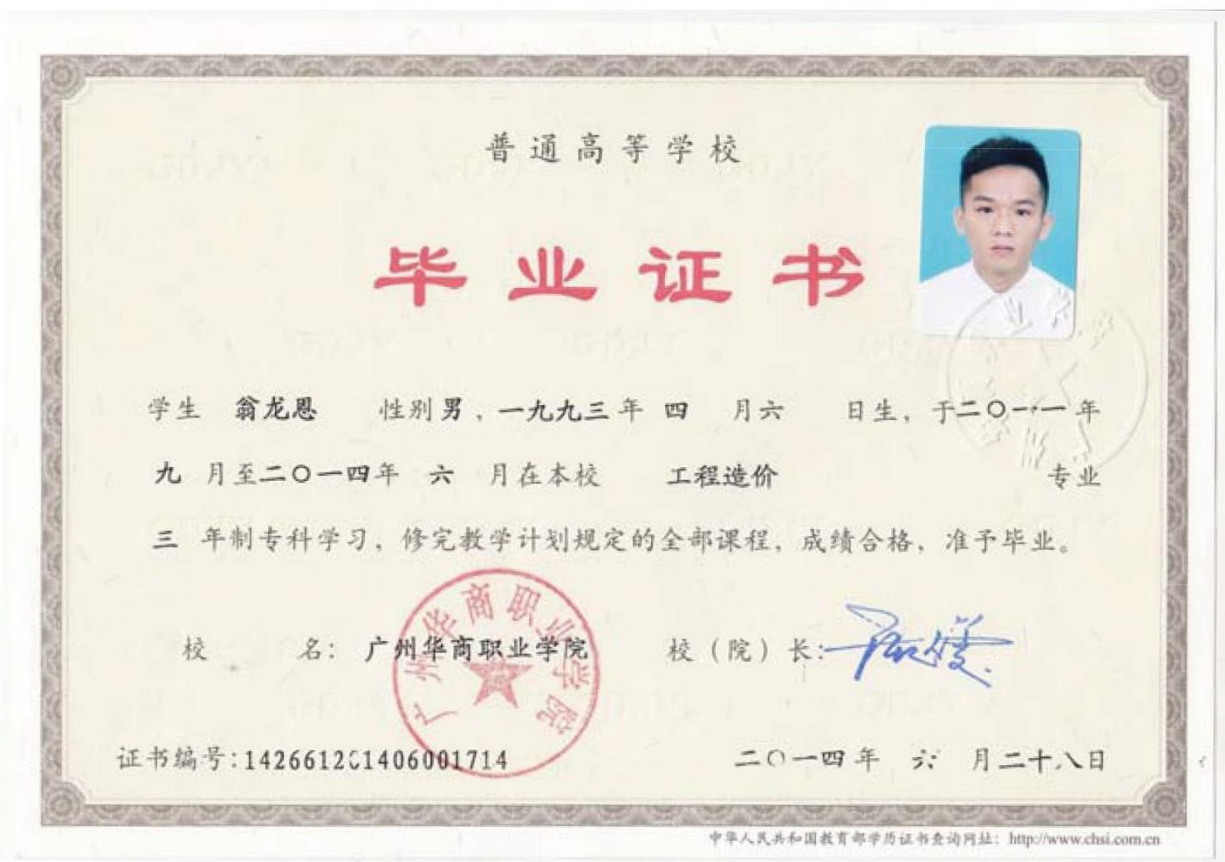 普通高等学校
毕业证书
学生 翁龙恩 性别男，一九九三年 四 月六 日生，于二〇一一年
九 月至二〇一四年 六 月在本校 工程造价 专业
三 年制专科学习，修完教学计划规定的全部课程，成绩合格，准予毕业。
校 名：广州华商职业学院 校（院）长：
广州华商职业学院
证书编号：142661201406001714 二〇一四年 六 月二十八日
中华人民共和国教育部学历证书查询网址：http://www.chsi.com.cn